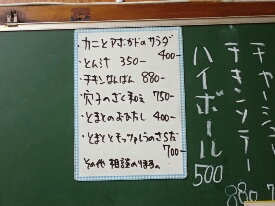 ・カニとアボカドのサラダ
400-
・とん汁 350-
・チキンなんばん 880-
・穴子のざく和え 750-
・とまとのおひたし 400-
・とまととモッツァレラのさらだ
700-
その他 相談のります。
ハイボール500
チキンソテー
880
チャーシュー